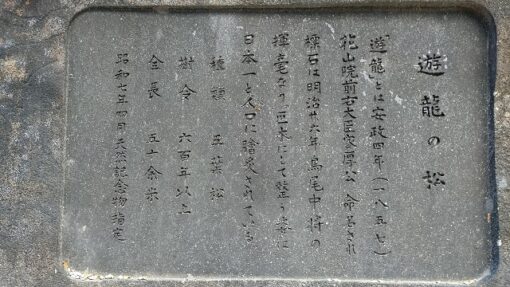 遊龍の松
「遊龍」とは安政四年(一八五七)
花山院前右大臣家厚公 命名され
標石は明治廿六年 鳥尾中将の
揮毫なり 巨木にして整う姿は
日本一と人口に膾炙されている
種類 五葉松
樹令 六百年以上
全長 五十余米
昭和七年四月天然記念物指定